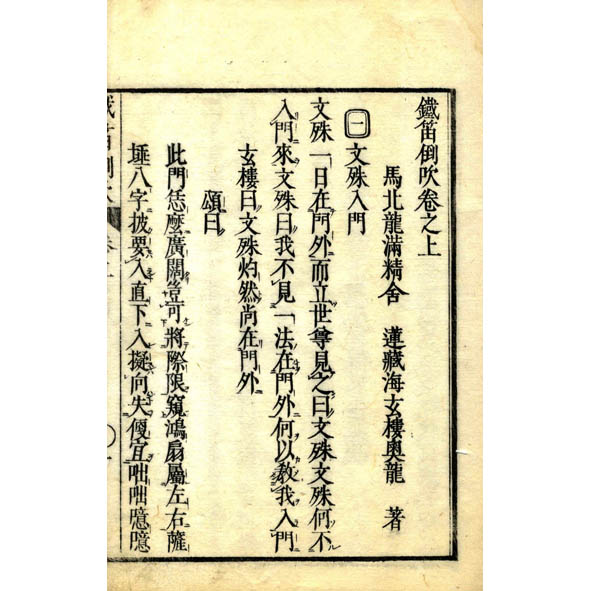 鐵笛倒吹卷之上
馬北龍滿精舍 蓮藏海玄樓奧龍 著
一 文殊入門
文殊一日在門外而立世尊見之曰文殊文殊何不
入門來文殊曰我不見一法在門外何以教我入門
玄樓曰文殊灼然尚在門外
頌曰
此門恁麼廣闊豈可將際限窺鴻扇屬左右薩
埵八字披要入直下入擬向失便宜咄咄臆臆
鐵笛倒吹